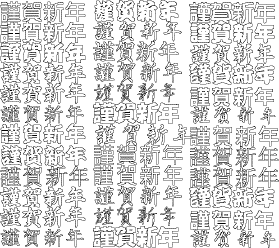 謹賀新年
謹賀新年
謹賀新年
謹賀新年
謹賀新年
謹賀新年
謹賀新年
謹賀新年
謹賀新年
謹賀新年
謹賀新年
謹賀新年
謹賀新年
謹賀新年
謹賀新年
謹賀新年
謹賀新年
謹賀新年
謹賀新年
謹賀新年
謹賀新年
謹賀新年
謹賀新年
謹賀新年
謹賀新年
謹賀新年
謹賀新年
謹賀新年
謹賀新年
謹賀新年
謹賀新年
謹賀新年
謹賀新年
謹賀新年
謹賀新年
謹賀新年